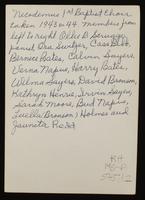 Nicodemus 1st Baptist Choir
taken 1943 or 44 members from
left to right Ollie B Scruggs
panel Ora Switzer, Cass Bates
Bernice Bates, Calvin Sayers
Verna Napue, Harry Bates,
Wilma Sayers, David Bronson,
Kathryn Henrie, Irvin Sayers,
Sarah Moore, Bud Napue,
Luella (Bronson) Holmes and
Juaneta Redd
RH
MS-P